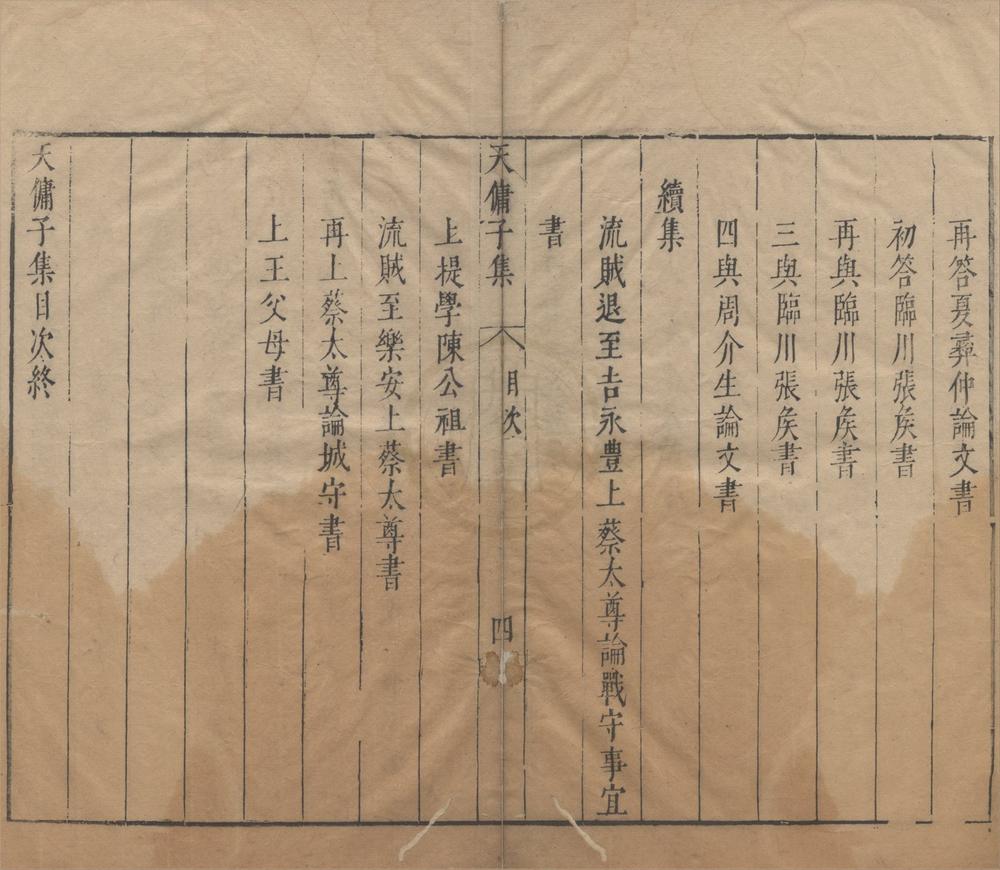 再答夏彝仲論文書
初答臨川張矦書
再與臨川張矦書
三與臨川張矦書
四與周介生論文書
續集
流賊退至吉永豐上蔡太尊論戰守事宜
書
天傭子集 目次 四
上提學陳公祖書
流賊至樂安上蔡太尊書
再上蔡太尊論城守書
上王父母書
天傭子集目次終